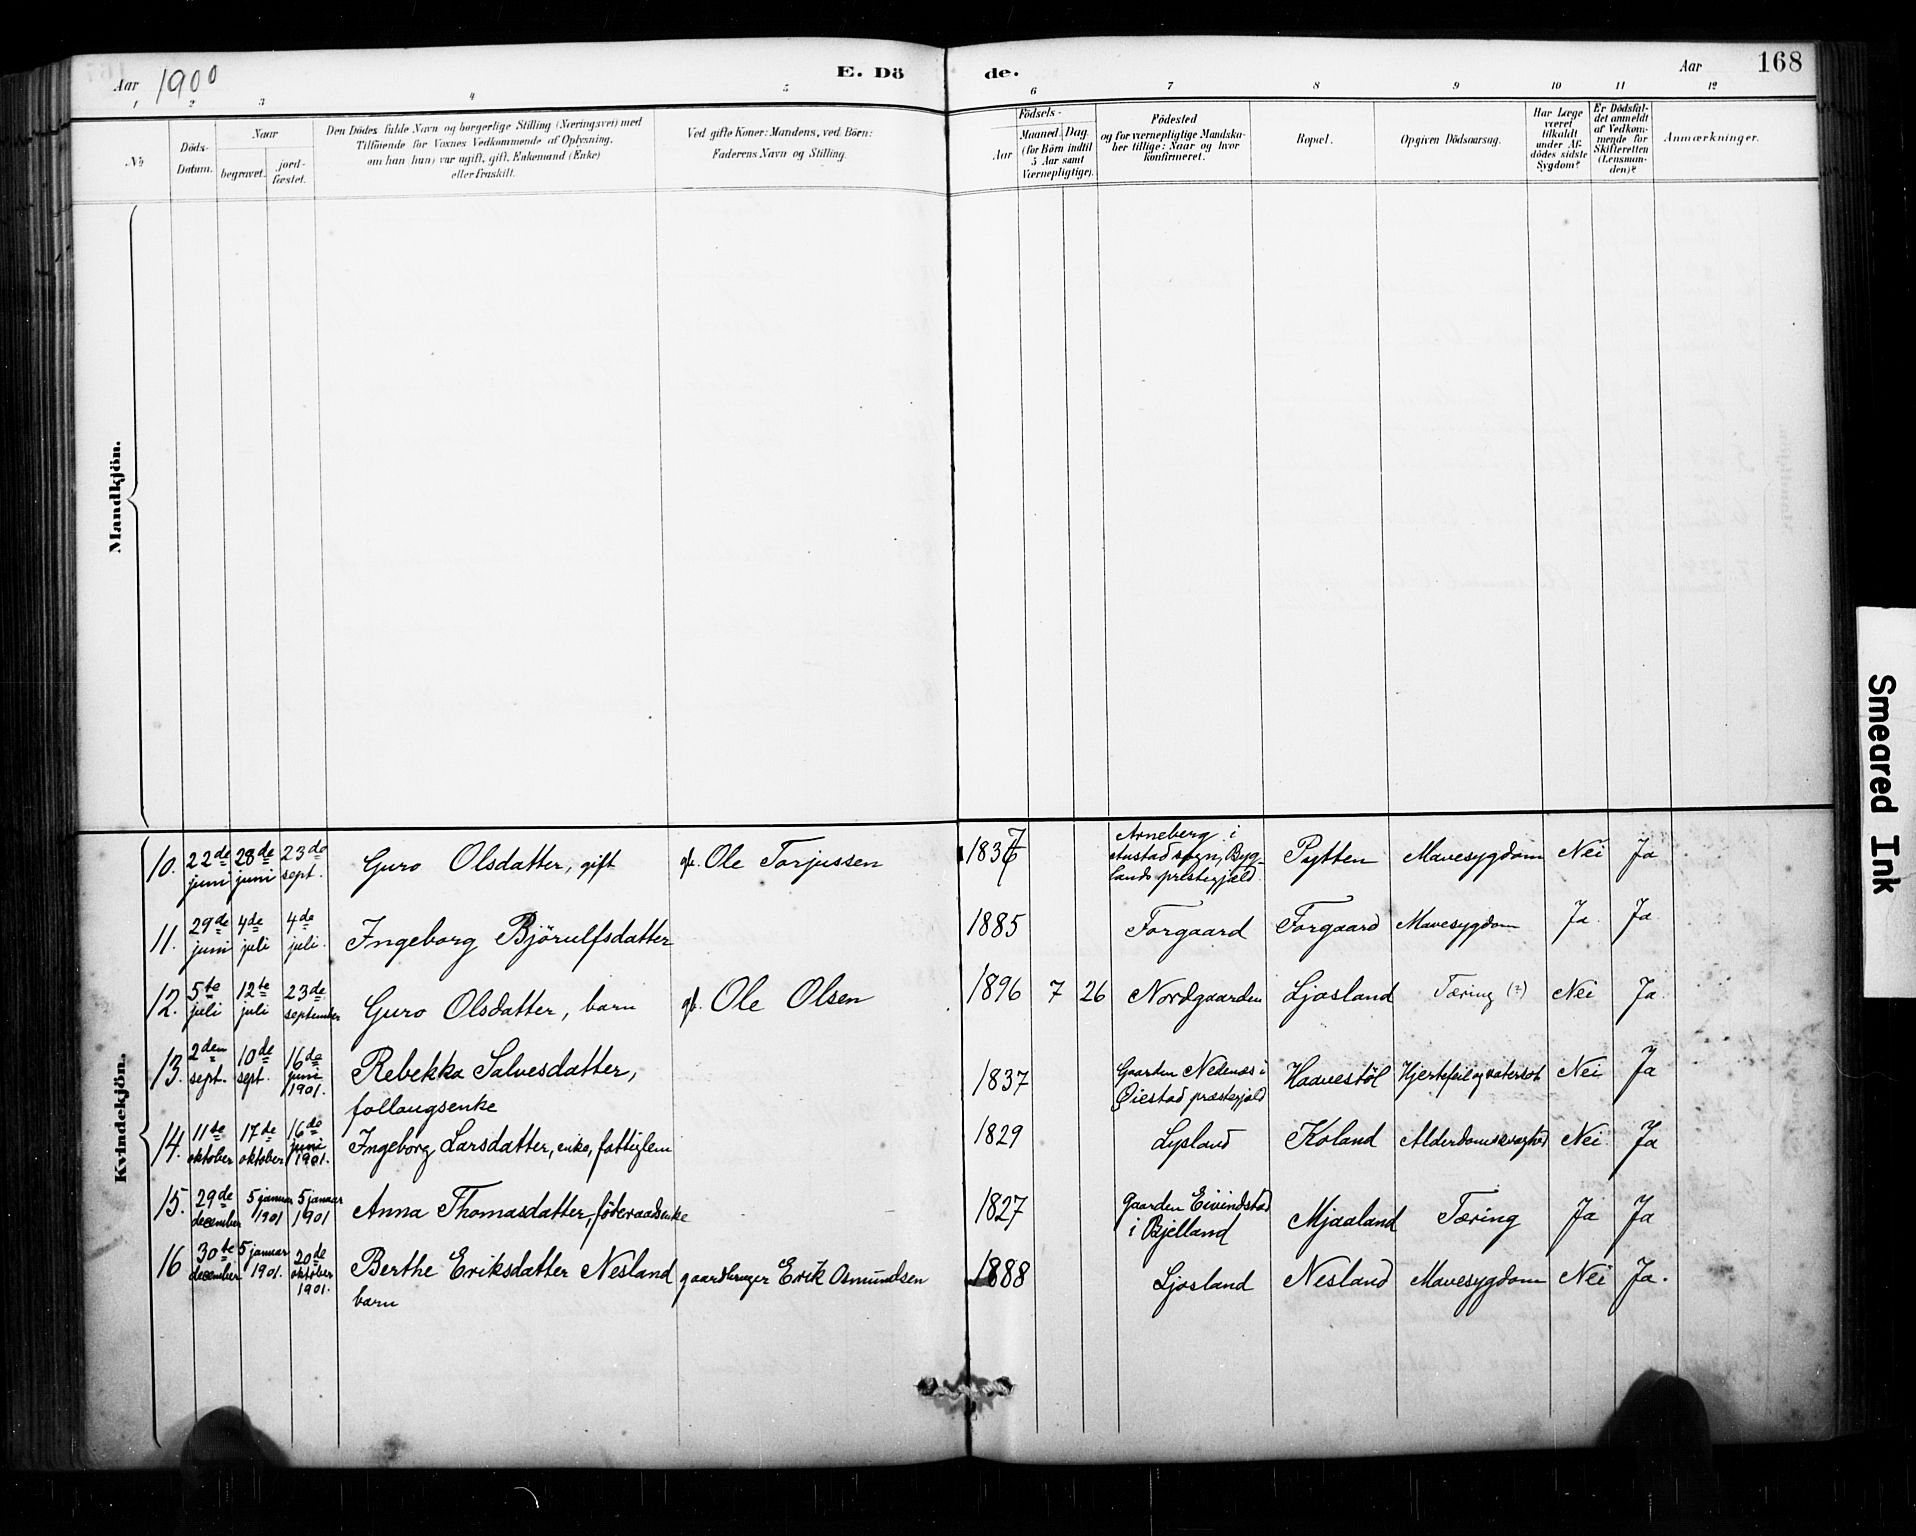 Aar 1900
E. Dö
de.
Aar
168
1 2 3 4 5 6 7 8 9 10 11 12
No
Döds-
Datum.
Naar
begravet.
jord-
fæstet.
Den Dödes fulde Navn og borgerlige Stilling (Næringsvei) med
Tilföiende for Voxnes Vedkommende af Oplysning,
om han (hun) var ugift, gift, Enkemand (Enke)
eller fraskilt.
Ved gifte Koner: Mandens, ved Börn:
Faderens Navn og Stilling.
Födsels-
Aar
Maaned.
Dag.
(for Börn indtil
5 Aar samt
Værnepligtige).
Födested
og for værnepligtige Mandska-
ber tillige: Naar og hvor
konfirmeret.
Bopæl.
Opgiven Dödsaarsag.
Har Læge
været
tilkaldt
under Af-
dödes sidste
Sygdom?
Er Dödsfal-
det anmeldt
af Vedkom-
mende for
Skifteretten
(Lensman-
den)?
Anmærkninger.
Mandkjön.
Kvindekjön.
10. 22de juni 28de juni 23de sept. Guro Olsdatter, gift gb. Ole Torjussen 1837 Arneberg i
Austad sogn, Byg-
lands prestegjæld. Pytten Mavesygdom Nei Ja
11. 29de juni 4de juli 4de juli. Ingeborg Björulfsdatter 1885 Forgaard Forgaard Mavesygdom Ja. Ja
12. 5te juli 12te juli 23de september Guro Olsdatter, barn gb. Ole Olsen 1896 7 26 Nordgaarden Ljosland Tæring (?) Nei Ja.
13. 2den sept. 10de sept. 16de juni 1901. Rebekka Salvesdatter,
follaugsenke 1837 Gaarden Nedenæs i
Øiestad præstegjæld Haavestøl Hjertefeil og vatersot Nei Ja
14. 11te oktober 17de oktober 16de juni 1901. Ingeborg Larsdatter, enke, fattiglem 1829 Lysland Koland Alderdomssvaghed Nei Ja
15. 29de december 5 januar 1901 5 januar 1901 Anna Thomasdatter, føderaadsenke 1827 Gaarden Eivindstad
i Bjelland Mjaaland Tæring Ja Ja
16 30te december 5 januar 1901. 20de oktober 1901. Berthe Eriksdatter Nesland
barn gaardbruger Erik Osmundsen 1888 Ljosland Nesland Mavesygdom Nei Ja.
Smeared Ink